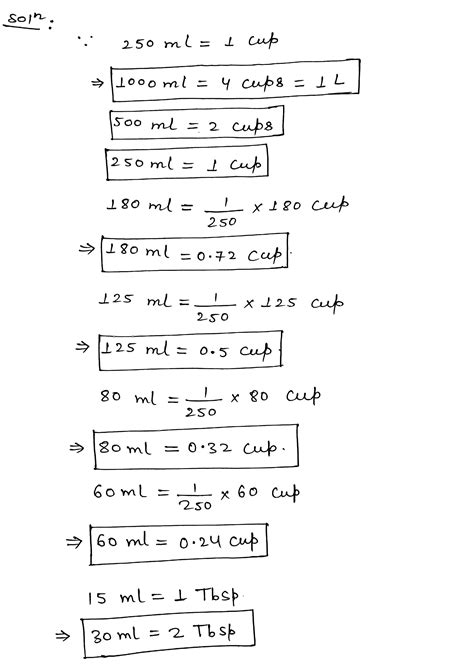 Soln:
∵ 250 ml = 1 cup
⇒ 1000 ml = 4 cups = 1 L
500 ml = 2 cups
250 ml = 1 cup
180 ml = 1/250 × 180 cup
⇒ 180 ml = 0.72 cup.
125 ml = 1/250 × 125 cup
⇒ 125 ml = 0.5 cup
80 ml = 1/250 × 80 cup
⇒ 80 ml = 0.32 cup.
60 ml = 1/250 × 60 cup
⇒ 60 ml = 0.24 cup
15 ml = 1 Tbsp.
⇒ 30 ml = 2 Tbsp